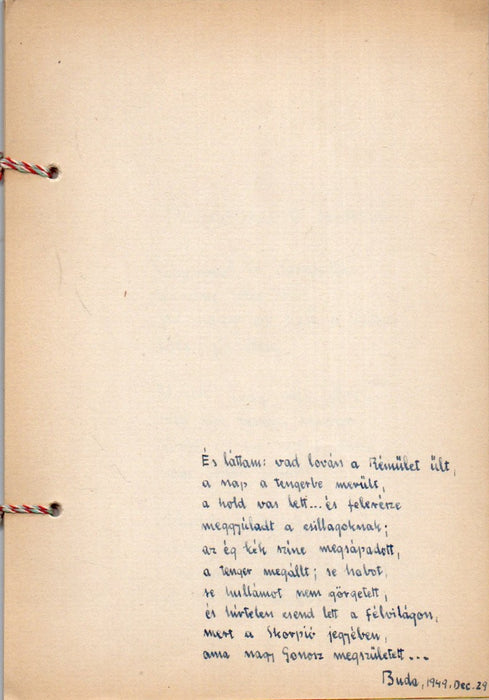 És láttam: vad lován a Rémület ült,
a nap a tengerbe merült,
a hold vas lett... és
meggyúladt a csillagoknak;
az ég kék színe megsápadott,
a tenger megállt; se habot,
se hullámot nem görgetett,
és hirtelen csend lett a félvilágon,
mert a Skorpió jegyében,
ama nagy Gonosz megszületett...
Buda, 1949. Dec. 29